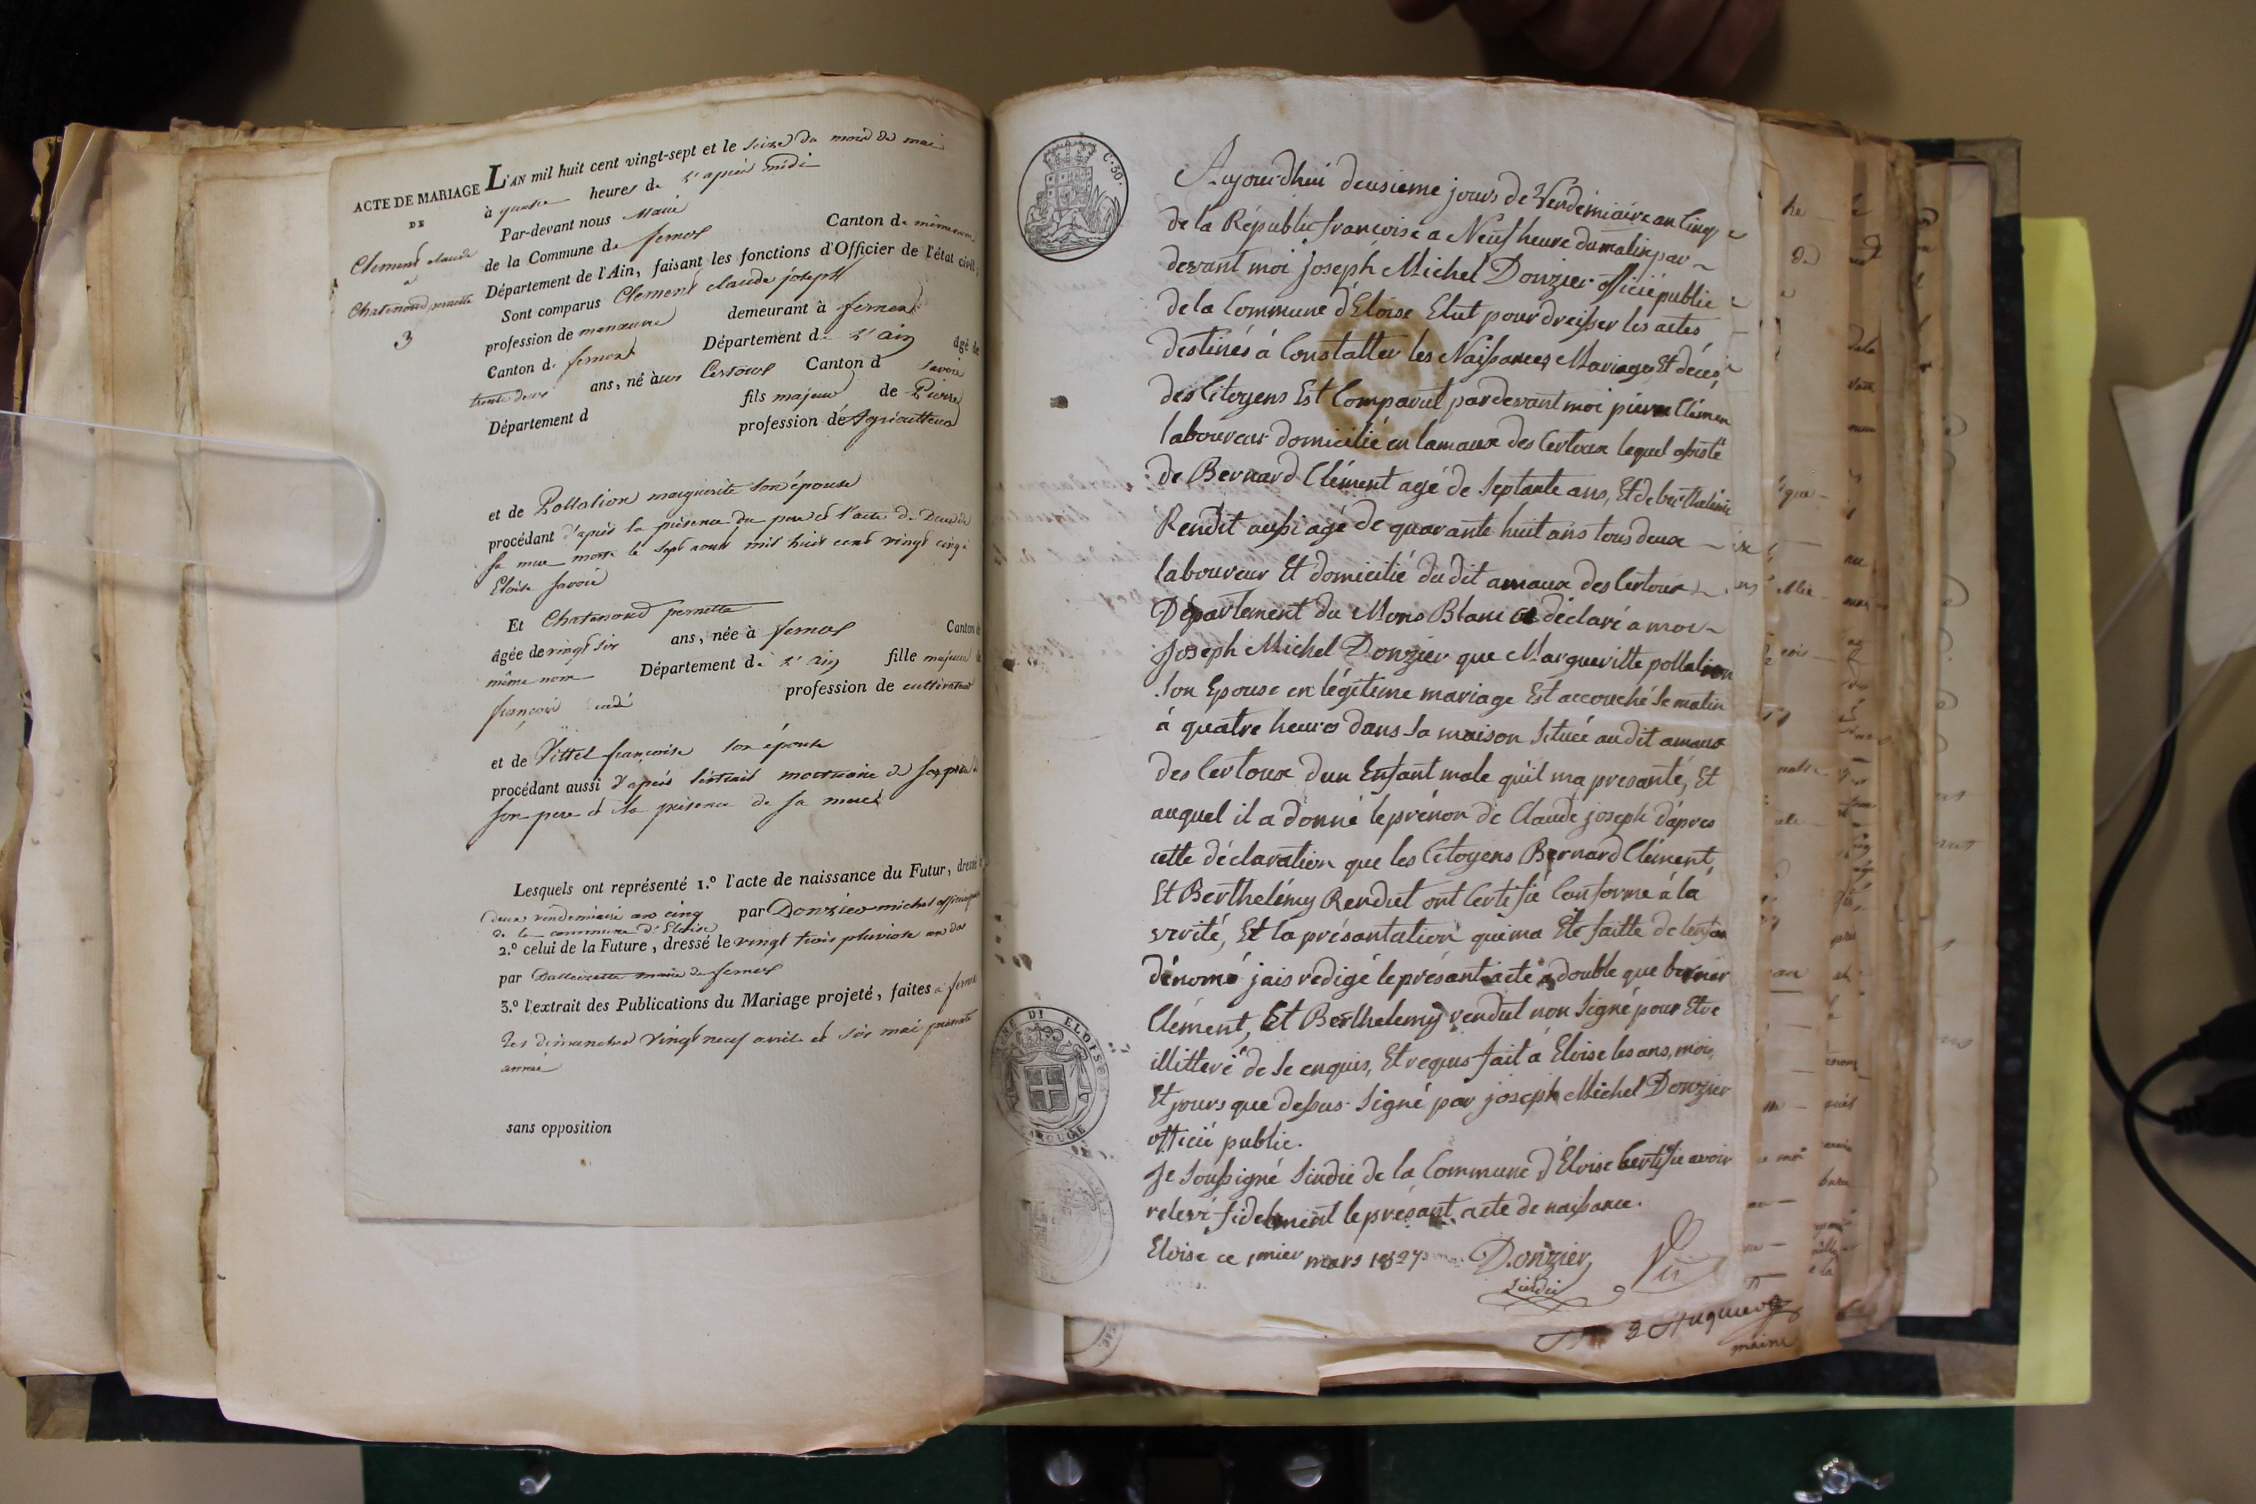 ACTE DE MARIAGE
DE
Clement claude
à
Chatenoud pernette
3
L'AN mil huit cent vingt-sept et le seize du mois de mai
à quatre heures de l'après midi
Par-devant nous Maire
de la Commune de fernex Canton de même nom
Département de l'Ain, faisant les fonctions d'Officier de l'état civil,
Sont comparus Clement claude joseph
profession de manœuvre demeurant à fernex
Canton de fernex Département de l'ain âgé de
trente deux ans, né aux Certoux Canton d savoie
Département d fils majeur de Pierre
profession de Agriculteur
et de Pollalion marguerite son épouse
procédant d'après la présence du pere et l'acte de Deces de
sa mere morte le sept aout mil huit cent vingt cinq à
Eloise savoie
Et Chatenoud pernette
âgée de vingt six ans, née à fernex Canton de
même nom Département de l'ain fille majeure de
françois profession de cultivateur
et de Vittet françoise son épouse
procédant aussi d'après l'extrait mortuaire de
son pere et la présence de sa mere
Lesquels ont représenté 1.º l'acte de naissance du Futur, dressé
deux vendemiaire an cinq par Donzier michel officier public
de la commune d'Eloise
2.º celui de la Future, dressé le vingt trois pluviose an
par maire de fernex
3.º l'extrait des Publications du Mariage projeté, faites à fernex
les dimanches vingt neuf avril et six mai présente
année
sans opposition
C. 50.
Aujourdhui deusieme jours de Vendemiaire an Cinq
de la Républic francoise a Neuf heure du matin par
devant moi joseph Michel Donzier officié public
de la Commune d'Eloise Elut pour dreisser les actes
destinés à Constatter les Naissances, Mariages, Et décés
des Citoyens Est Comparut pardevant moi pierre Clémen
laboureur domicilié en lamaux des Certoux lequel assisté
de Bernard Clément agé de Septante ans, Et de berthélémi
Rendut aussi agé de quarante huit ans tous deux
laboureur Et domicilié du dit amaux des Certoux
Département du Mons Blanc a déclaré a moi
Joseph Michel Donzier que Margueritte pollalion
son Epouse en légitime mariage Est accouché se matin
à quatre heures dans sa maison Située au dit amaux
des Certoux d'un Enfant male quil ma presanté, Et
auquel il a donné le prénon de Claude joseph d'apres
cette déclaration que les Citoyens Bernard Clément,
Et Berthelémy Rendut ont Certifié Conforme à la
verité, Et la présantation qui ma Eté faitte de lenfan
dénomé jais redigé le présant acte a double que bernar
Clément, Et Berthelemy rendut non Signé pour Etre
illitteré de se enquis, Et requis fait à Eloise les ans, moi,
Et jours que dessus. Signé par joseph Michel Donzier
officié public.
Je Soussigné Sindic de la Commune d'Eloise Certifie avoir
relevé fidelment le présant acte de naissance.
Eloise ce 1mier mars 1827 Donzier
Sindic
Vu
maire